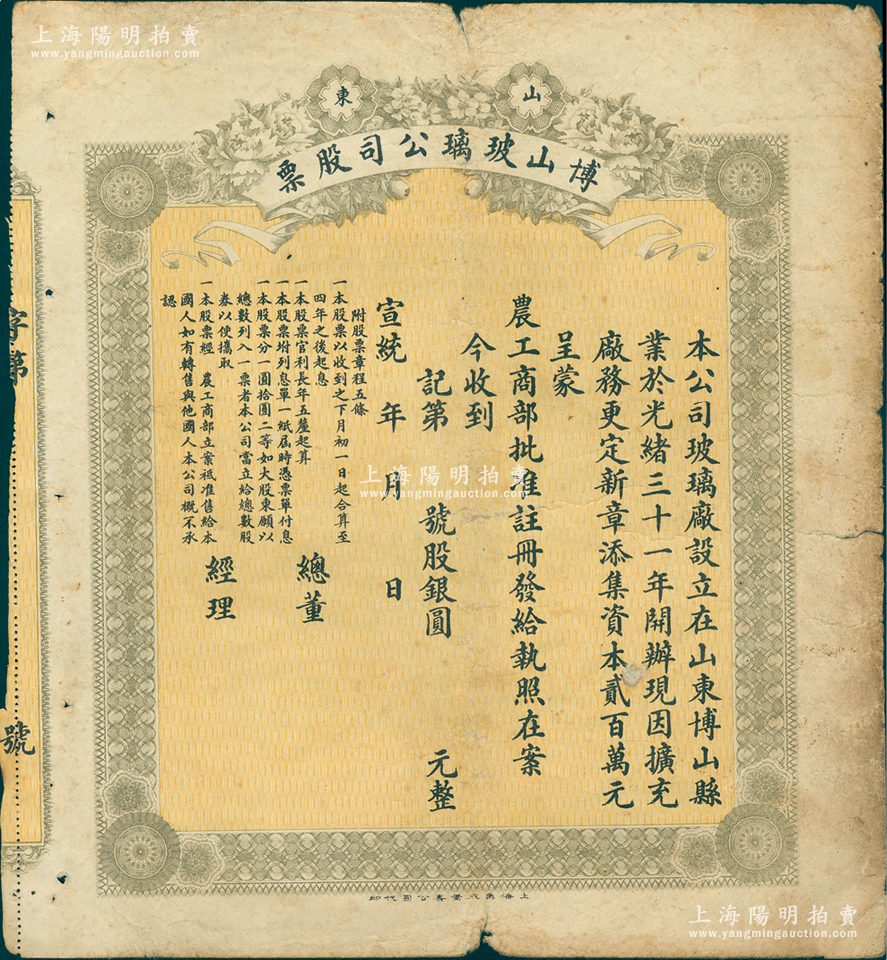 上海陽明拍賣
www.yangmingauction.com
山東
博山玻璃公司股票
本公司玻璃廠設立在山東博山縣
業於光緒三十一年開辦現因擴充
廠務更定新章添集資本貳百萬元
呈蒙
農工商部批准註冊發給執照在案
今收到
記第 號股銀圓 元整
宣統 年 月 日
附股票章程五條
一本股票以收到之下月初一日起合算至
四年之後起息
一本股票官利長年五釐起算
一本股票坿列息單一紙屆時憑票單付息
一本股票分一圓拾圓二等如大股東願以
總數列入一票者本公司當立給總數股
券以便攜取
一本股票經 農工商部立案祗准售給本
國人如有轉售與他國人本公司概不承
認
總董
經理
字第 號
上海陽明拍賣
www.yangmingauction.com
上海 公司代印
上海陽明拍賣
www.yangmingauction.com